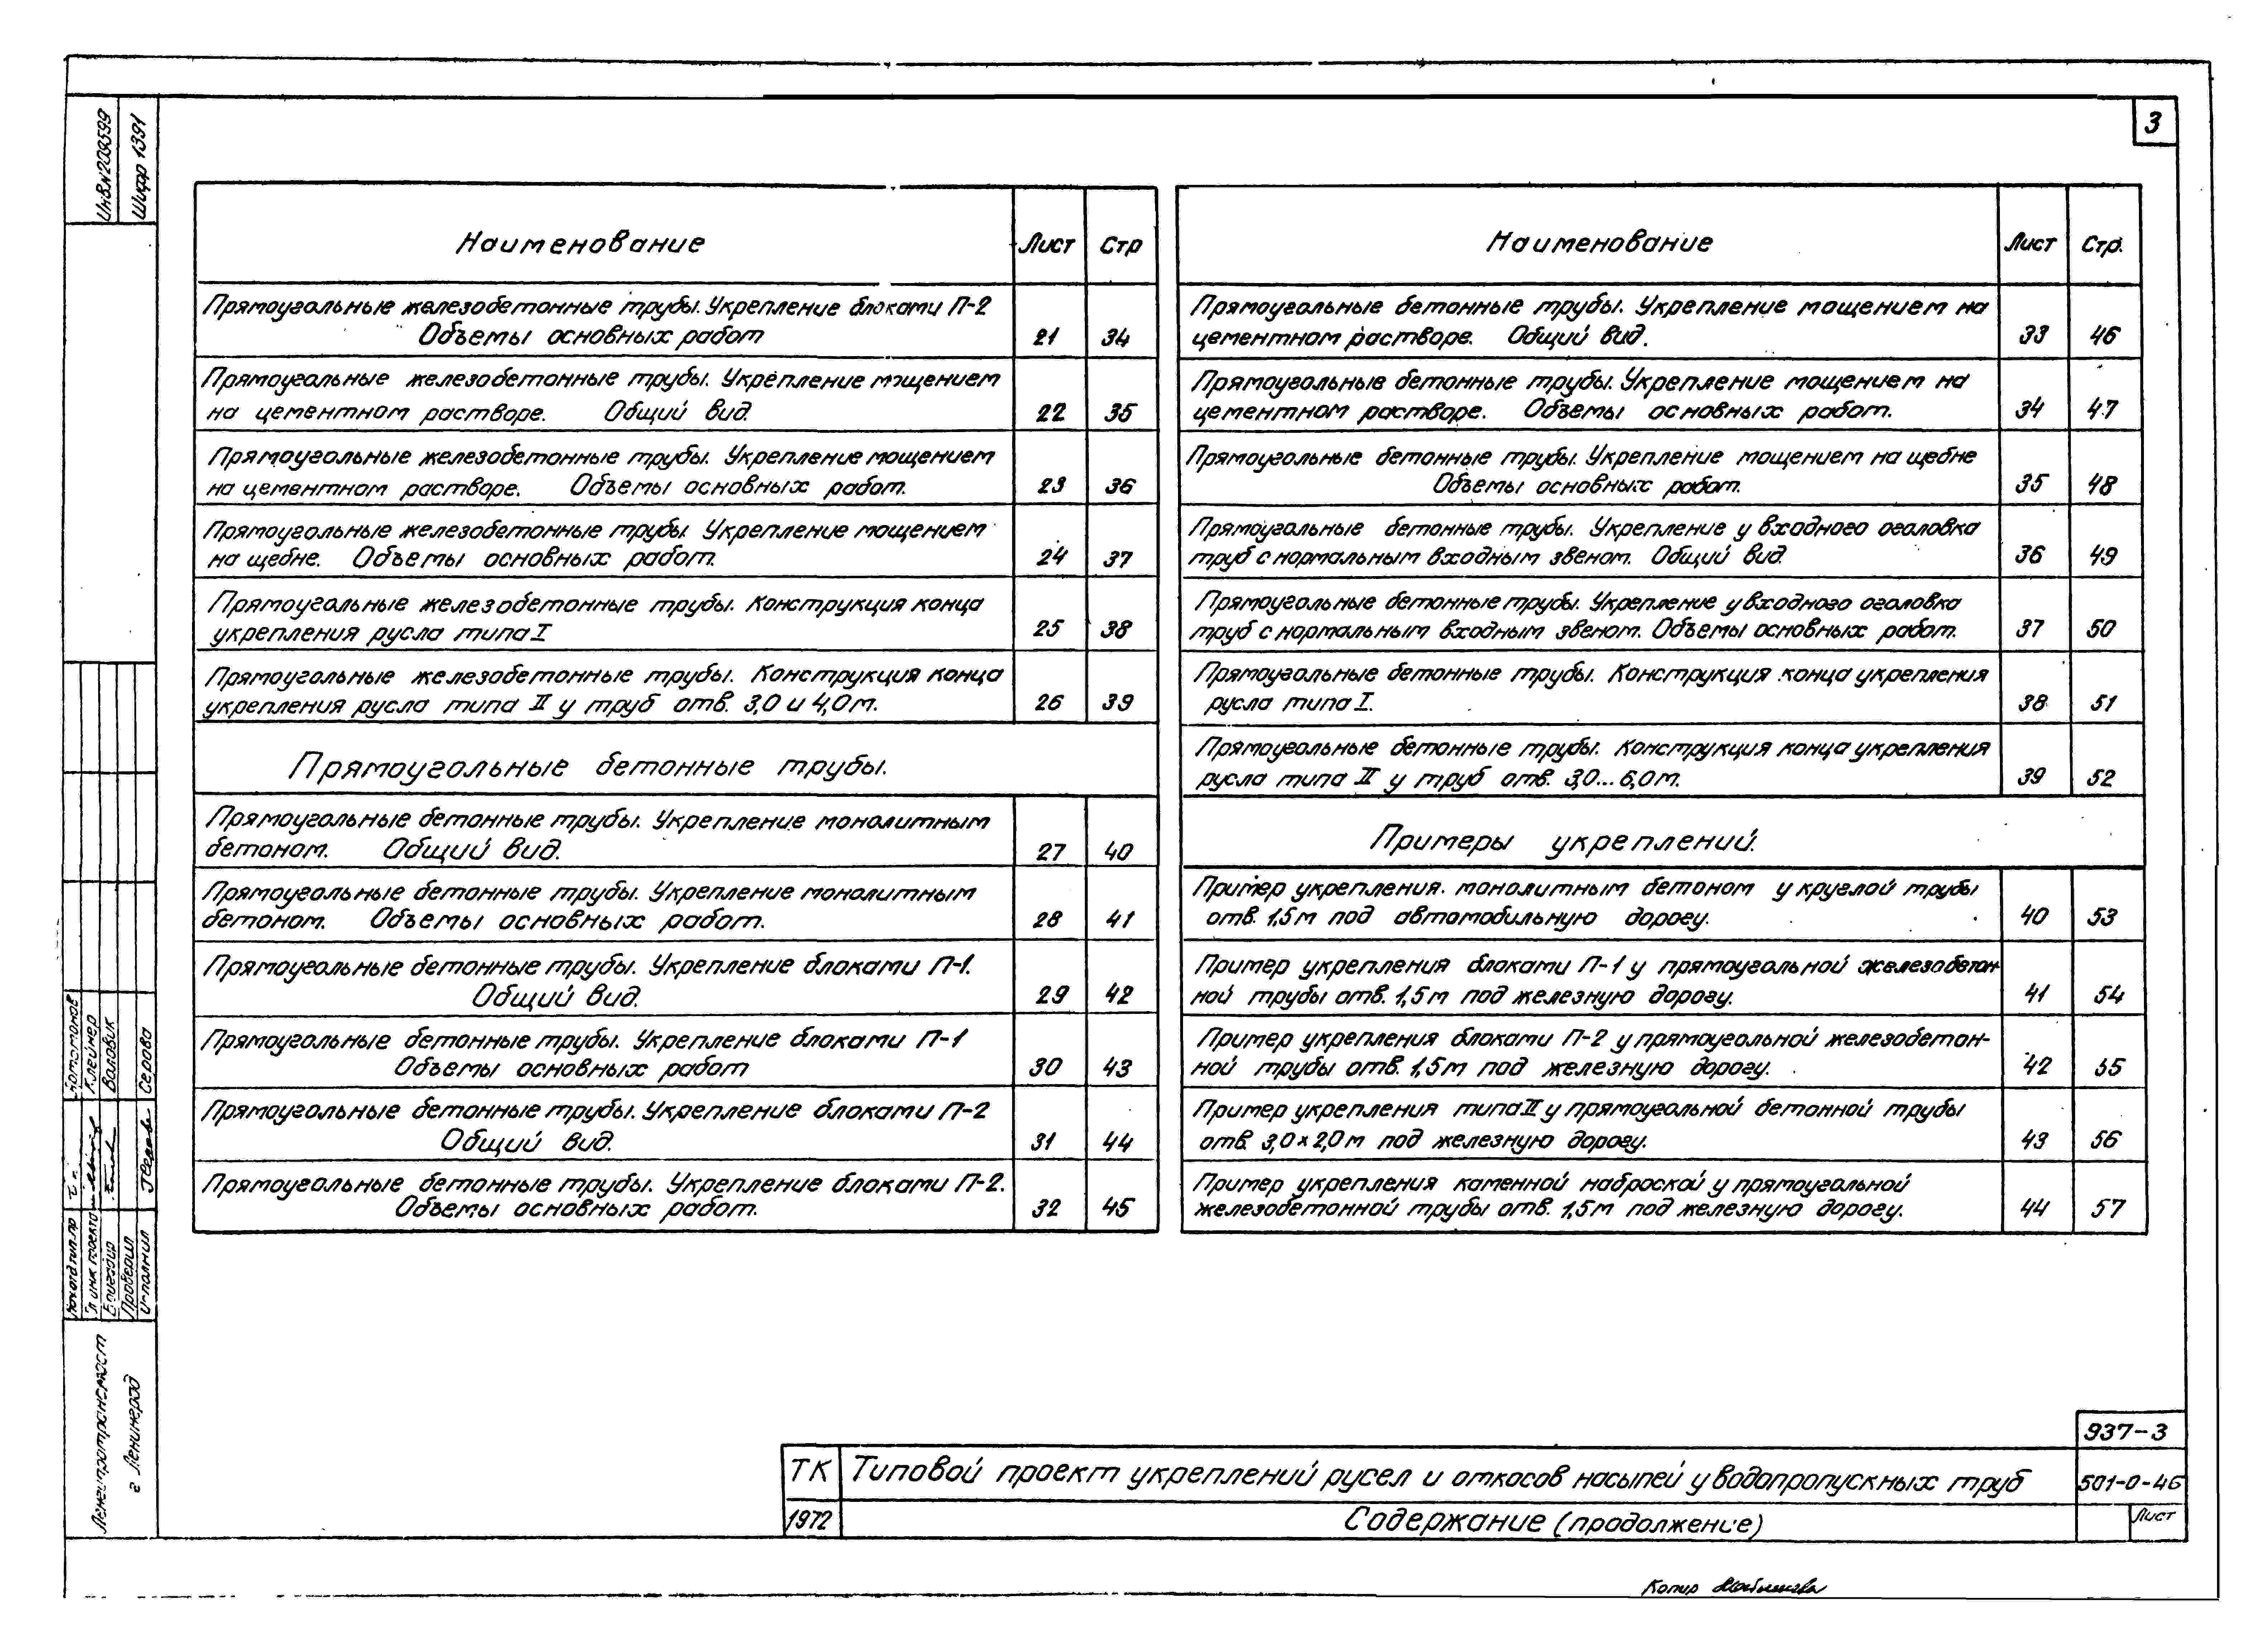 3
Инв.№209599
Шифр 1391
Наименование Лист Стр
Прямоугольные железобетонные трубы. Укрепление блоками П-2
Объемы основных работ 21 34
Прямоугольные железобетонные трубы. Укрепление мощением
на цементном растворе. Общий вид. 22 35
Прямоугольные железобетонные трубы. Укрепление мощением
на цементном растворе. Объемы основных работ. 23 36
Прямоугольные железобетонные трубы. Укрепление мощением
на щебне. Объемы основных работ. 24 37
Прямоугольные железобетонные трубы. Конструкция конца
укрепления русла типа I 25 38
Прямоугольные железобетонные трубы. Конструкция конца
укрепления русла типа II у труб отв. 3,0 и 4,0 м. 26 39
Прямоугольные бетонные трубы.
Прямоугольные бетонные трубы. Укрепление монолитным
бетоном. Общий вид. 27 40
Прямоугольные бетонные трубы. Укрепление монолитным
бетоном. Объемы основных работ. 28 41
Прямоугольные бетонные трубы. Укрепление блоками П-1.
Общий вид. 29 42
Прямоугольные бетонные трубы. Укрепление блоками П-1
Объемы основных работ 30 43
Прямоугольные бетонные трубы. Укрепление блоками П-2
Общий вид. 31 44
Прямоугольные бетонные трубы. Укрепление блоками П-2.
Объемы основных работ. 32 45
Наименование Лист Стр.
Прямоугольные бетонные трубы. Укрепление мощением на
цементном растворе. Общий вид. 33 46
Прямоугольные бетонные трубы. Укрепление мощением на
цементном растворе. Объемы основных работ. 34 47
Прямоугольные бетонные трубы. Укрепление мощением на щебне
Объемы основных работ. 35 48
Прямоугольные бетонные трубы. Укрепление у входного оголовка
труб с нормальным входным звеном. Общий вид. 36 49
Прямоугольные бетонные трубы. Укрепление у входного оголовка
труб с нормальным входным звеном. Объемы основных работ. 37 50
Прямоугольные бетонные трубы. Конструкция конца укрепления
русла типа I. 38 51
Прямоугольные бетонные трубы. Конструкция конца укрепления
русла типа II у труб отв. 3,0...6,0м. 39 52
Примеры укреплений.
Пример укрепления монолитным бетоном у круглой трубы
отв. 1,5м под автомобильную дорогу. 40 53
Пример укрепления блоками П-1 у прямоугольной железобетон
ной трубы отв. 1,5м под железную дорогу. 41 54
Пример укрепления блоками П-2 у прямоугольной железобетон-
ной трубы отв. 1,5м под железную дорогу. 42 55
Пример укрепления типа II у прямоугольной бетонной трубы
отв. 3,0×2,0м под железную дорогу. 43 56
Пример укрепления каменной наброской у прямоугольной
железобетонной трубы отв. 1,5м под железную дорогу. 44 57
Клейнер
Валовик
Серова
Проверил
Ленгипротрансмост
г Ленинград
937-3
ТК Типовой проект укреплений русел и откосов насыпей у водопропускных труб 501-0-46
1972 Содержание (продолжение) Лист
Копир